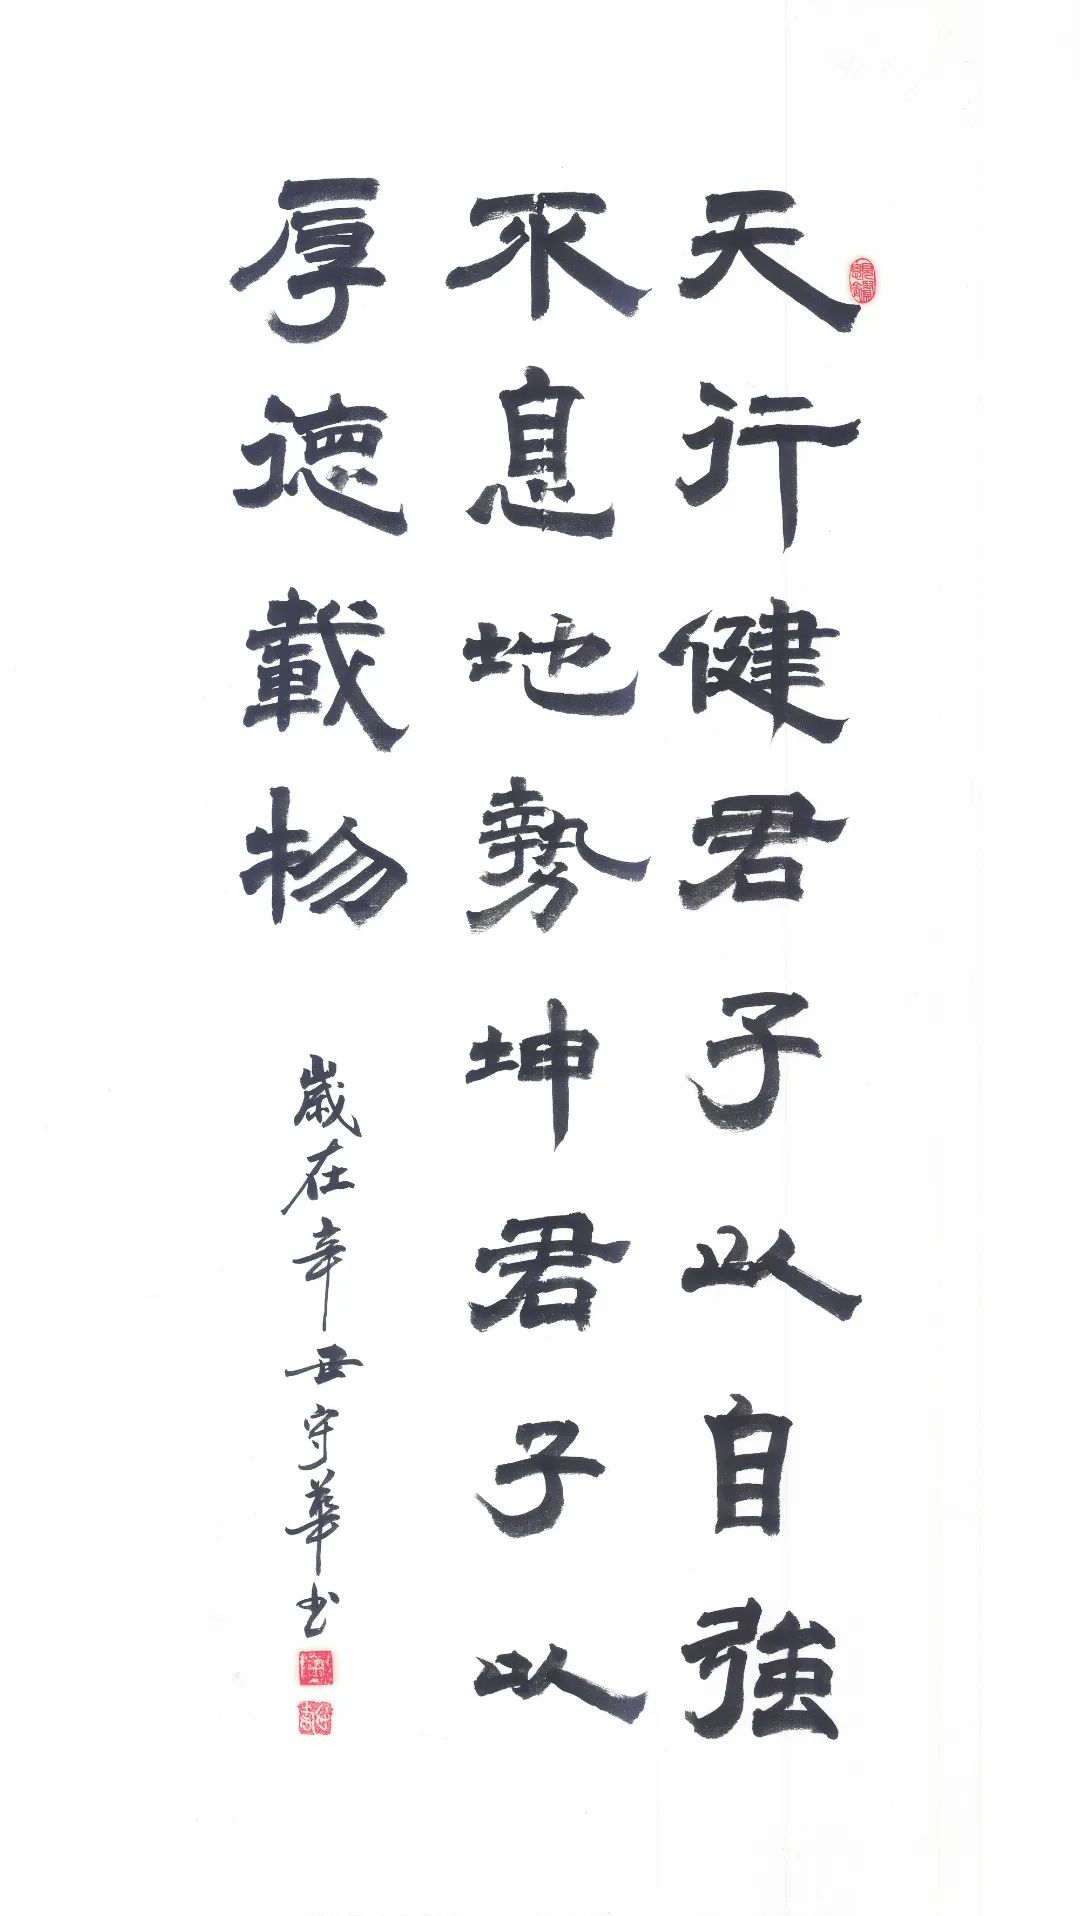 天行健君子以自強
不息地勢坤君子以
厚德載物
歲在辛丑守華书